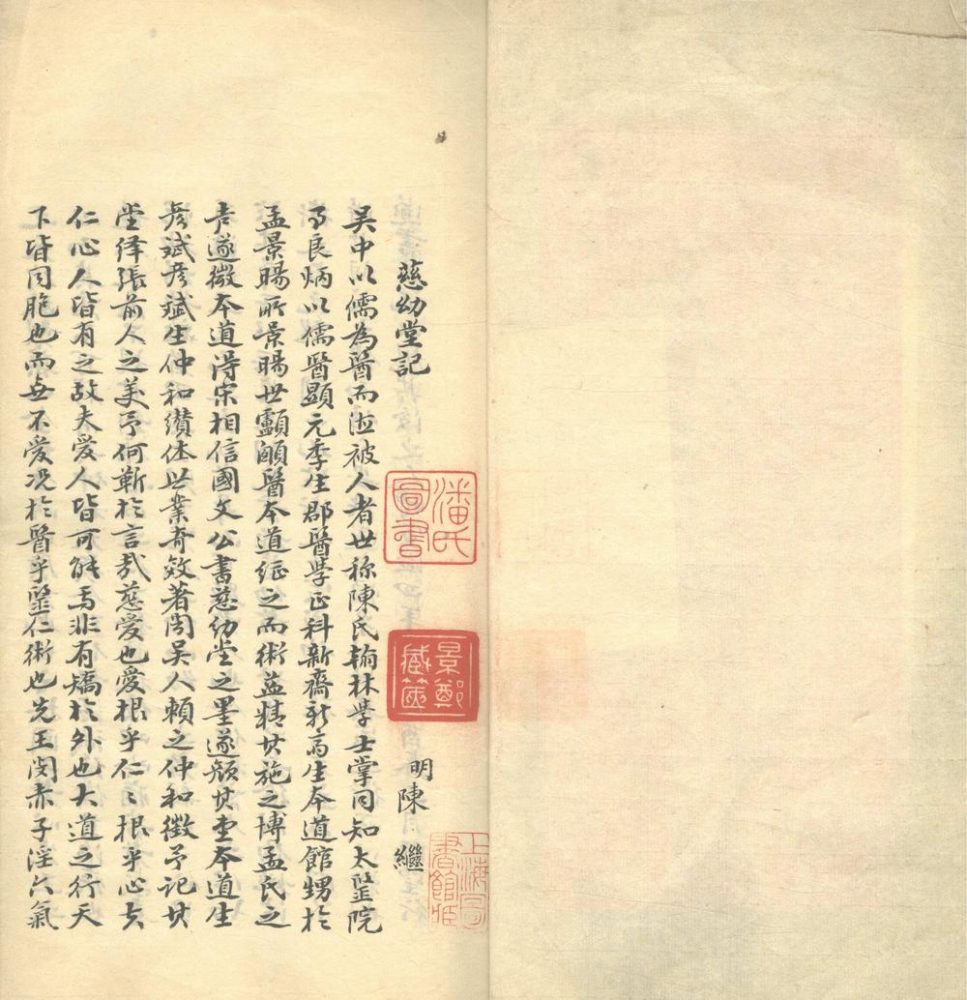 慈幼堂記
明陳繼
吳中以儒為醫而澤被人者世称陳氏翰林學士掌同知太醫院
事良炳以儒醫顯元季生郡醫學正科新齋新齋生本道館甥於
孟景暘所景暘世顱顖醫本道從之而術益精其施之博孟氏之
吉遂徵本道得宋相信國文公書慈幼堂之墨遂顏其堂本道生
彥斌彥斌生仲和纘休世業奇效著聞吳人賴之仲和徵予記其
堂俾張前人之美予何靳於言哉慈愛也愛根乎仁仁根乎心夫
仁心人皆有之故夫愛人皆可能焉非有矯於外也大道之行天
下皆同胞也而無不愛况於醫乎醫仁術也先王閔赤子淫六氣
潘氏圖書
景鄭藏篋
上海圖書館藏